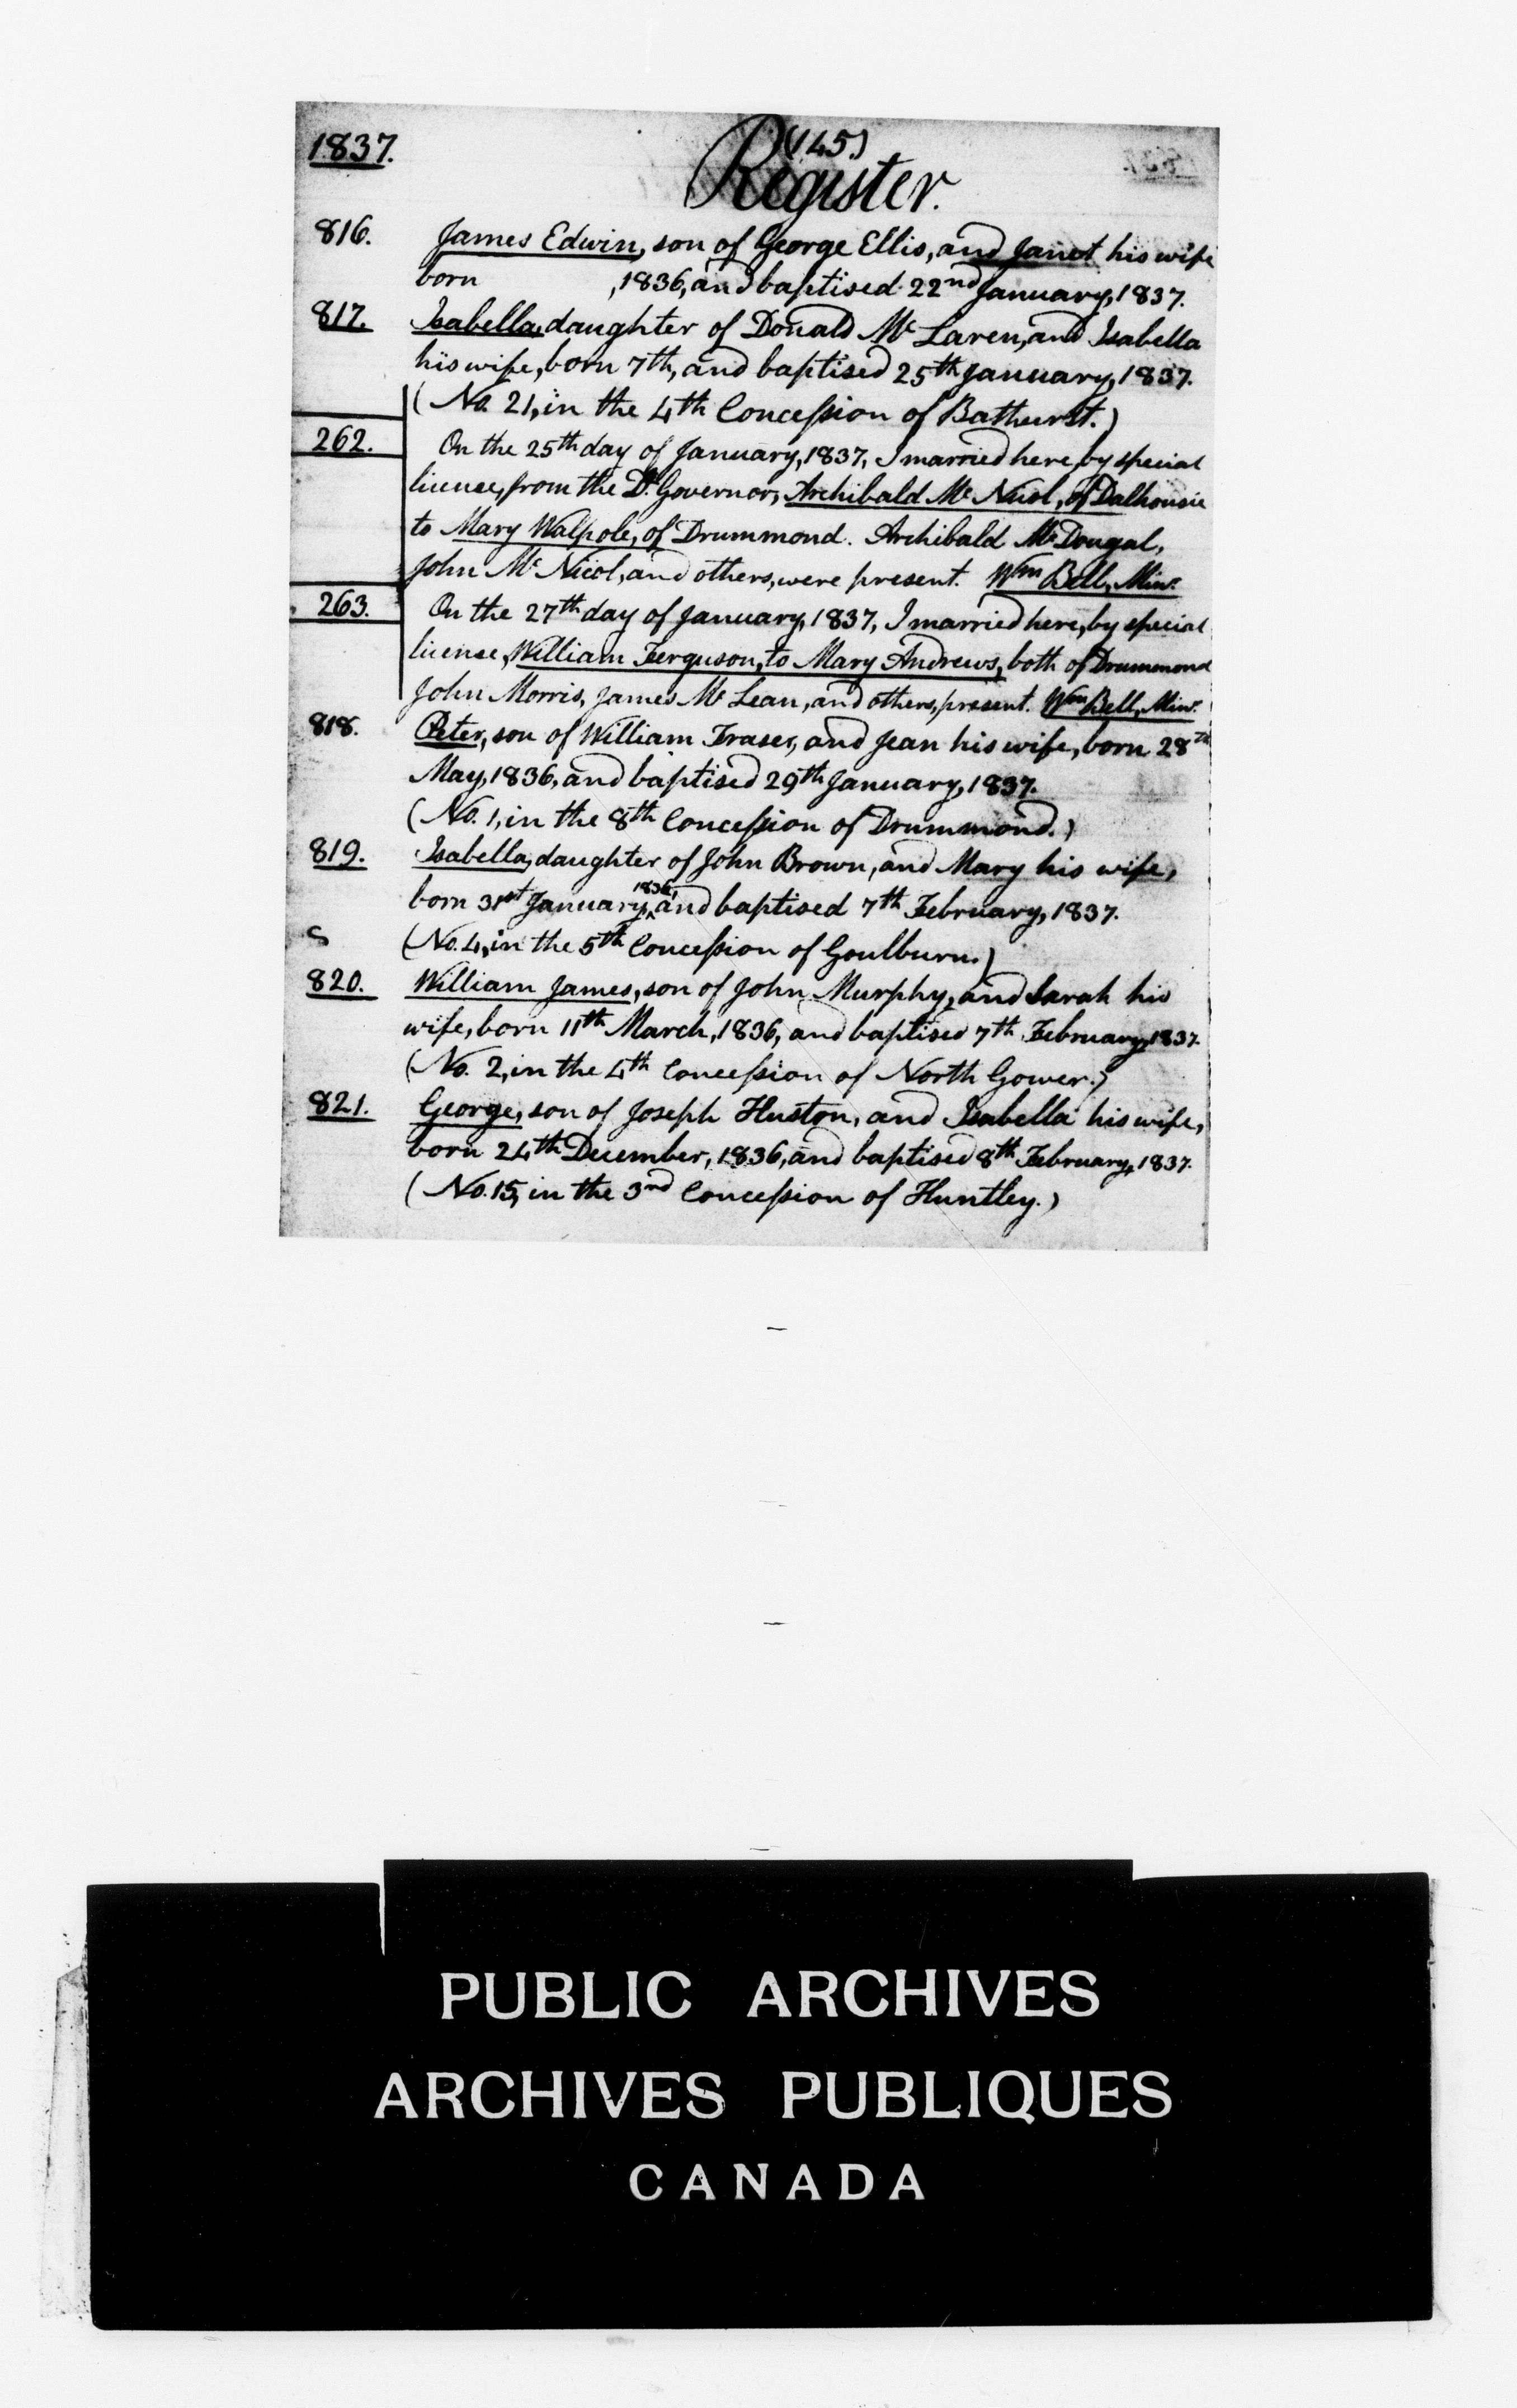 1837.
(145)
Register.
816. James Edwin, son of George Ellis, and Janet his wife
born ,1836, and baptised 22nd January, 1837.
817. Isabella, daughter of Donald Mc Laren, and Isabella
his wife, born 7th, and baptised 25th January, 1837.
(No. 21, in the 4th Concession of Bathurst.)
262. On the 25th day of January, 1837, I married here, by special
licence, from the Dt. Governor, Archibald Mc Nicol, of Dalhousie
to Mary Walpole, of Drummond. Archibald McDougal,
John Mc Nicol, and others, were present. Wm Bell, Minr.
263. On the 27th day of January, 1837, I married here, by special
license, William Ferguson, to Mary Andrews, both of Drummond
John Morris, James Mc Lean, and others, present. Wm Bell, Minr.
818. Peter, son of William Fraser, and Jean his wife, born 28th
May, 1836, and baptised 29th January, 1837.
(No. 1, in the 8th Concession of Drummond.)
819. Isabella, daughter of John Brown, and Mary his wife,
born 31st January, 1836, and baptised 7th February, 1837.
S (No. 4, in the 5th Concession of Goulburn.)
820. William James, son of John Murphy, and Sarah his
wife, born 11th March, 1836, and baptised 7th February, 1837.
(No. 2, in the 4th Concession of North Gower.)
821. George, son of Joseph Huston, and Isabella his wife,
born 24th December, 1836, and baptised 8th February, 1837.
(No. 15, in the 3nd Concession of Huntley.)
PUBLIC ARCHIVES
ARCHIVES PUBLIQUES
CANADA